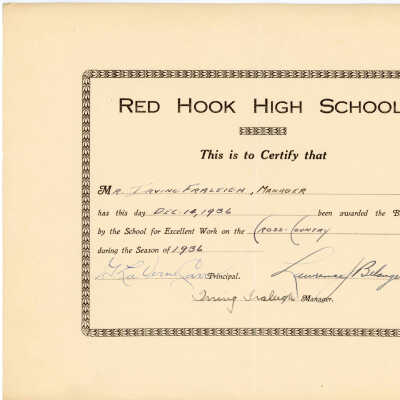 RED HOOK HIGH SCHOOL
This is to Certify that
MR. IRVING FRALEIGH, MANAGER
has this day DEC. 18, 1936 been awarded the B
by the School for Excellent Work on the CROSS-COUNTRY
during the Season of 1936
Principal. Lawrence J Belanger
Irving Fraleigh Manager.